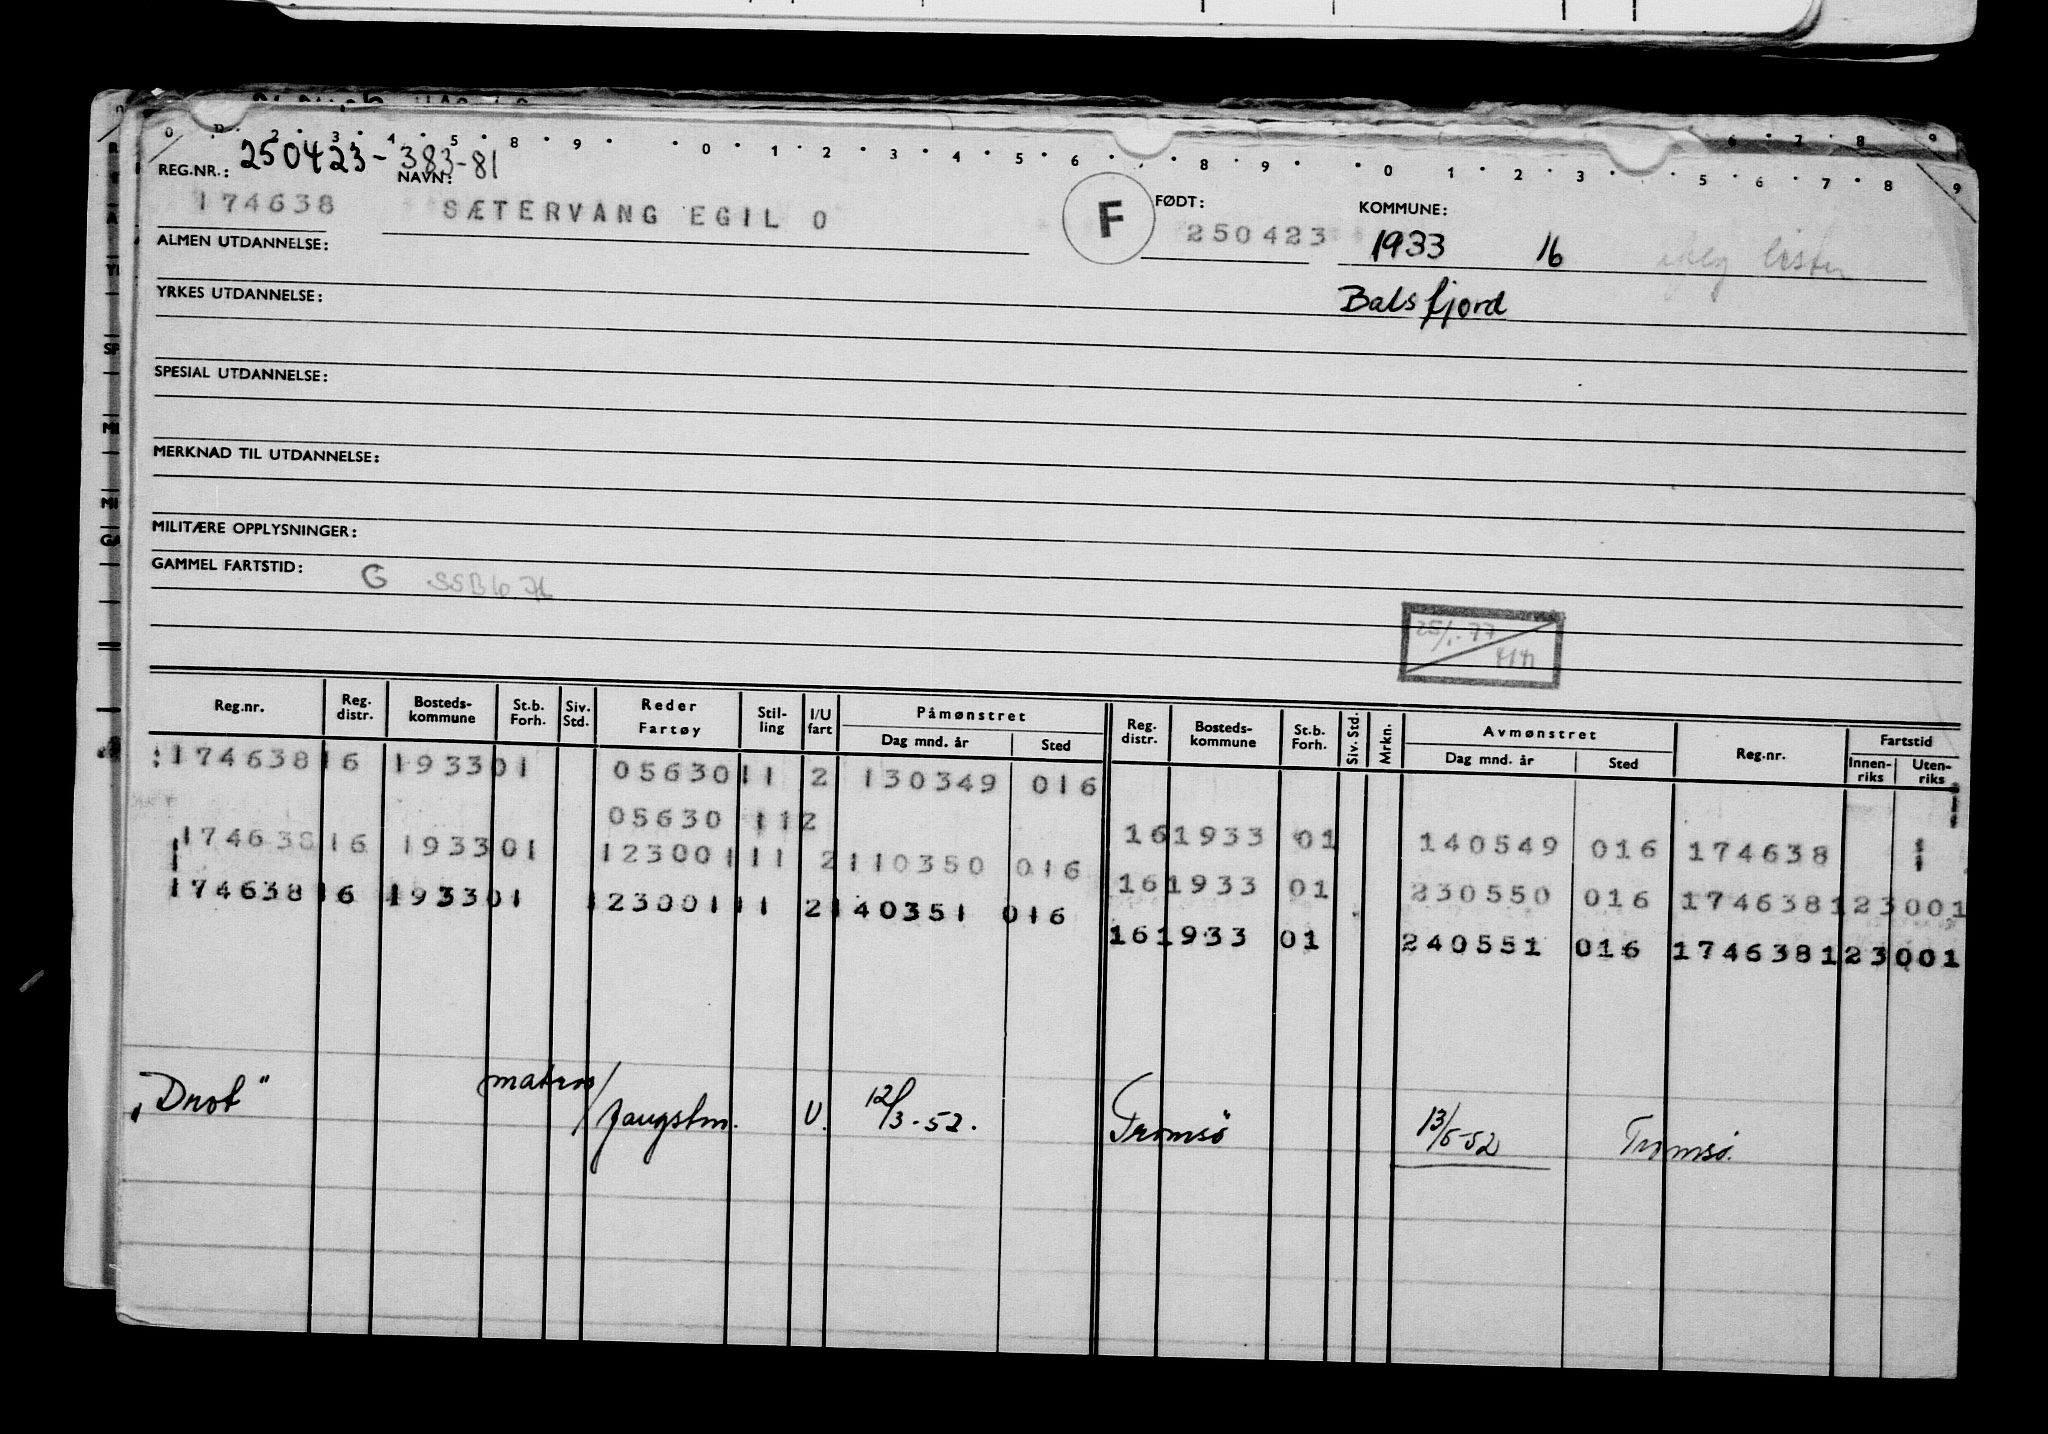 250423-383-81
REG.NR.: NAVN: FØDT: KOMMUNE:
174638 SÆTERVANG EGIL O F 250423 1933 16
Balsfjord
ALMEN UTDANNELSE:
YRKES UTDANNELSE:
SPESIAL UTDANNELSE:
MERKNAD TIL UTDANNELSE:
MILITÆRE OPPLYSNINGER:
GAMMEL FARTSTID: G
Reg.nr. Reg. distr. Bosteds-kommune St.b. Forh. Siv. Std. Reder Fartøy Stil-ling I/U fart Påmønstret Dag mnd. år Sted Reg. distr. Bosteds-kommune St.b. Forh. Siv. Std. Mrkn. Avmønstret Dag mnd. år Sted Reg.nr. Fartstid Innen-riks Uten-riks
174638 16 1933 01 05630 11 2 130349 016
05630 11 2 161933 01 140549 016 174638
174638 16 1933 01 123001 11 2 110350 016
161933 01 230550 016 174638 123001
174638 16 1933 01 123001 11 2 140351 016
161933 01 240551 016 174638 123001
matros/
"Drot" fangstm. U. 12/3-52. Tromsø 13/5-52 Tromsø.